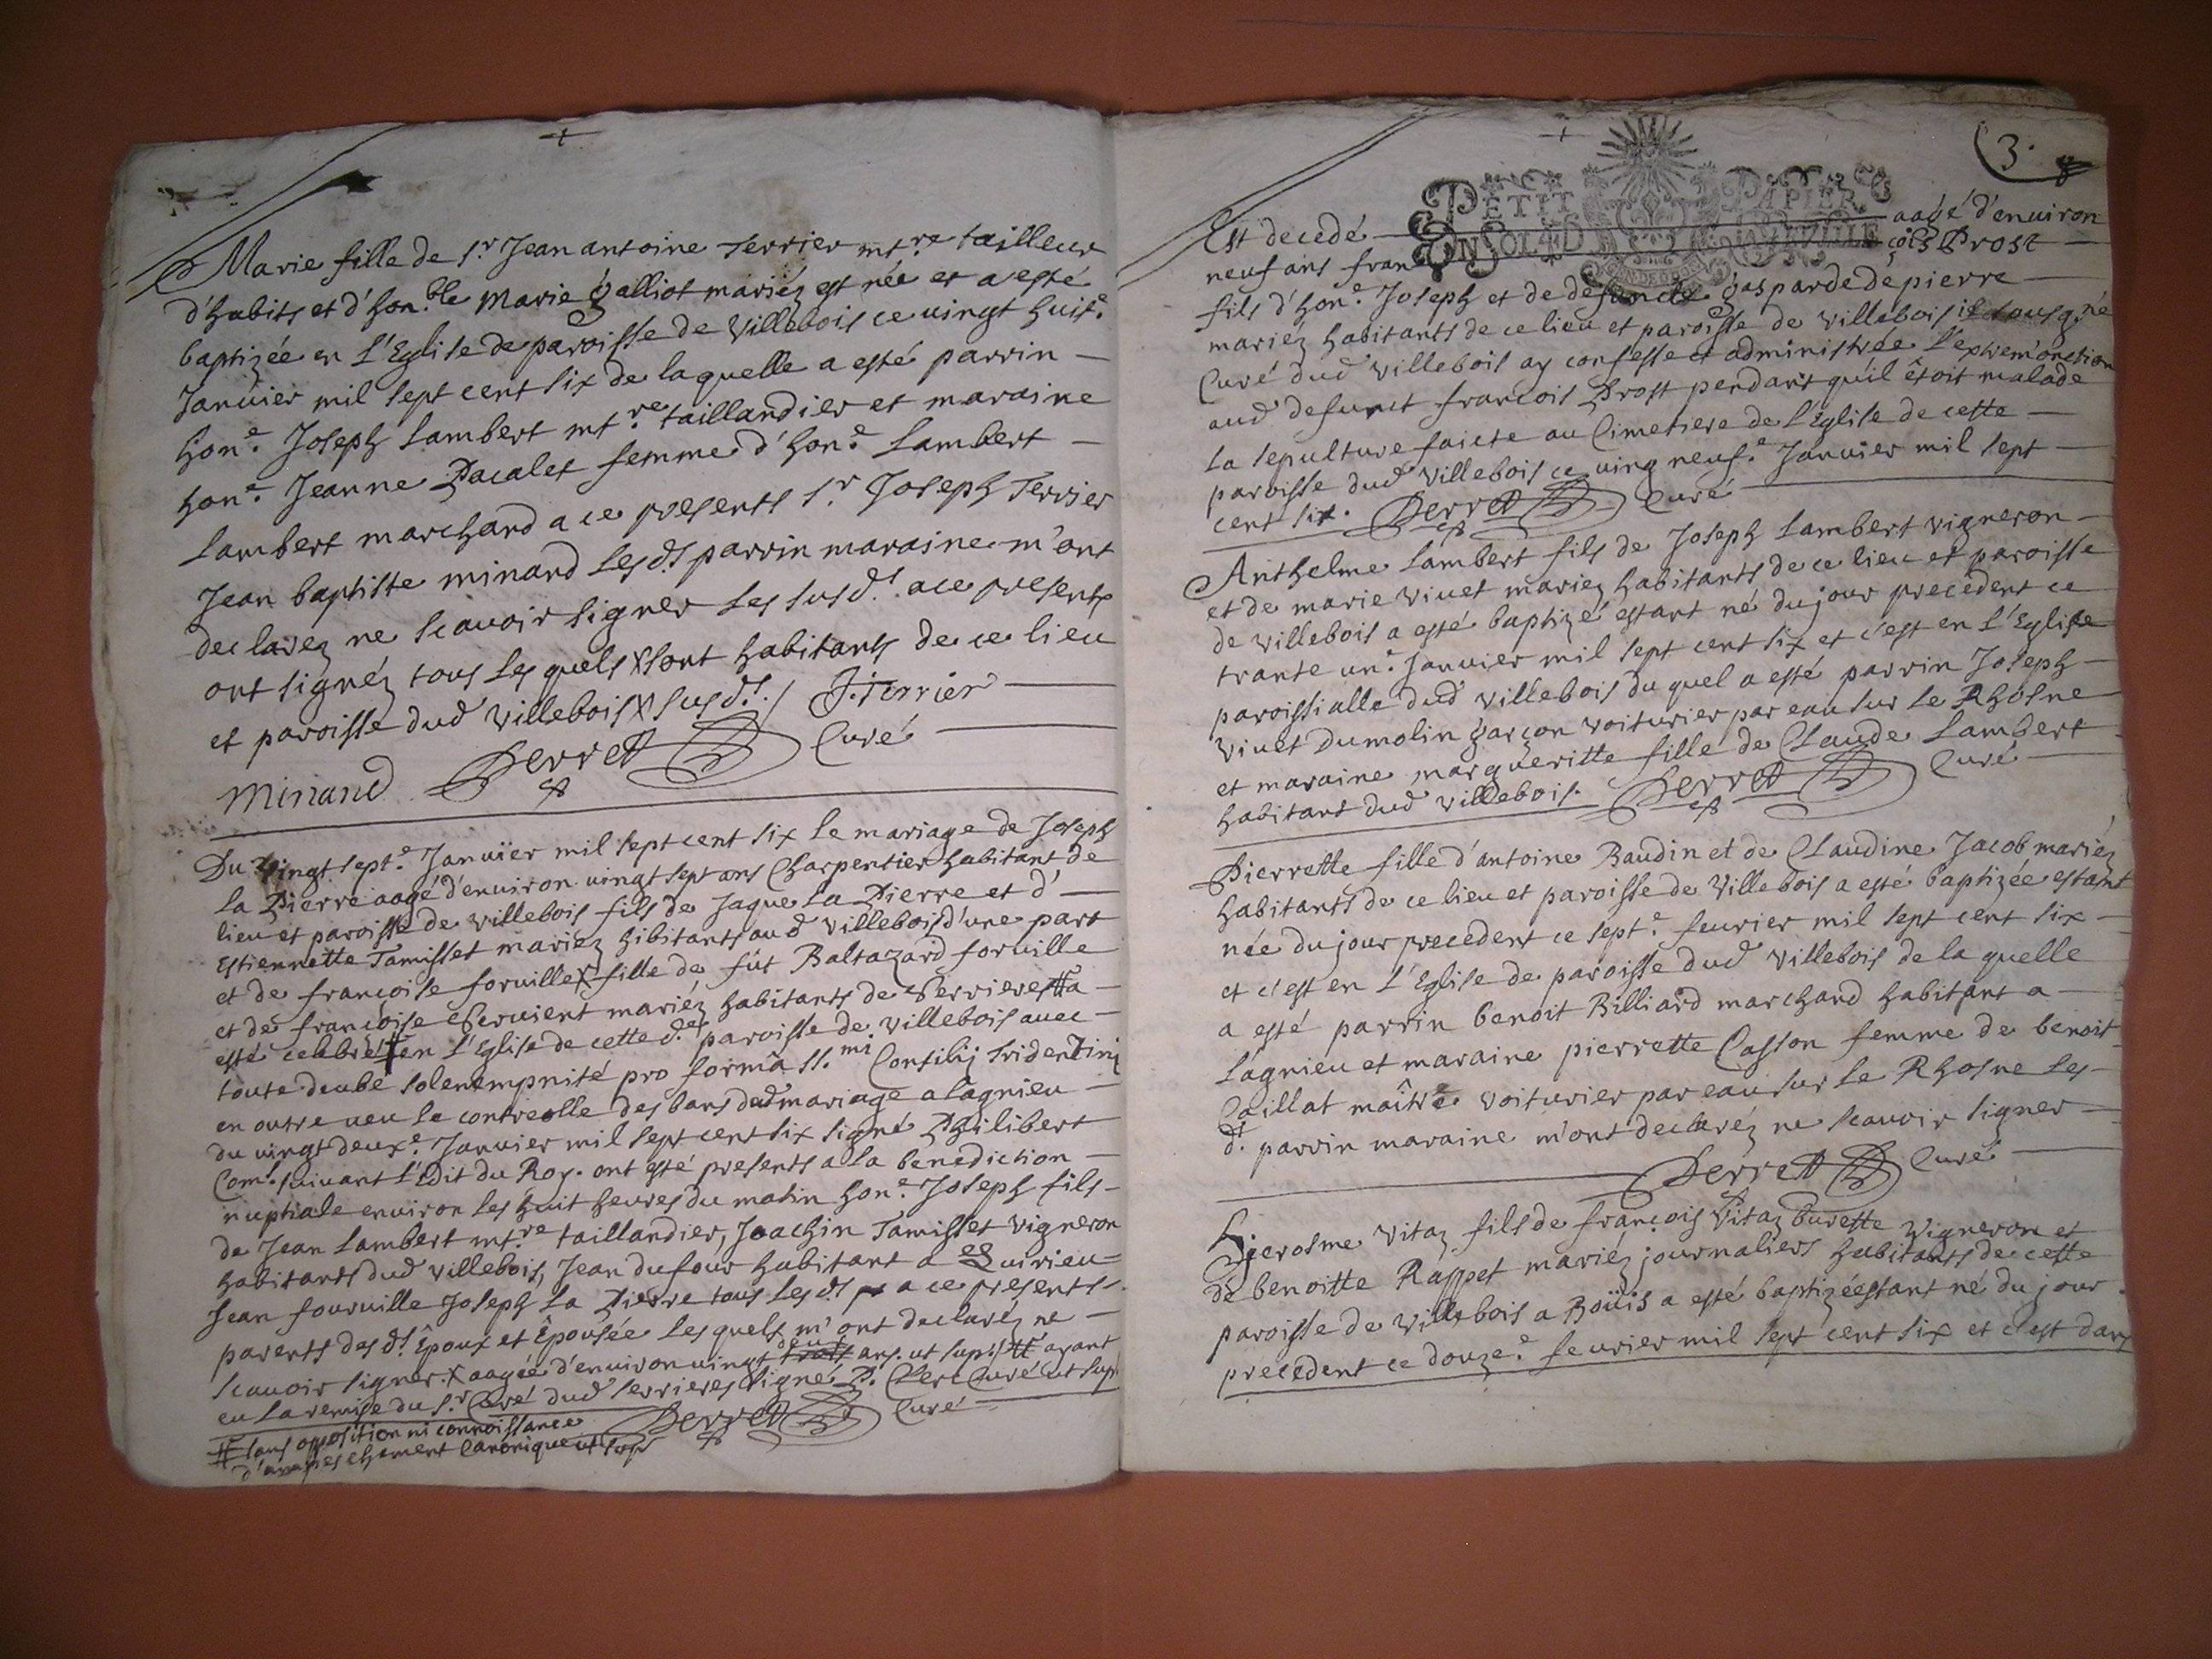 Marie fille de s.r Jean antoine Terrier mt.re tailleur
d'habits et d'hon.ble Marie galliot mariéz est née et a esté
baptizée en l'Eglise de paroisse de Villebois ce uingt huit.e
Januier mil sept cent six de laquelle a esté parrin —
hon.e Joseph Lambert mt.re taillandier et maraine
hon.e Jeanne Pacalet femme d'hon.e Lambert —
Lambert marchand a ce presents s.r Joseph Terrier
Jean baptiste minand les d.ts parrin maraine m'ont
declarez ne scauoir signer les susd.ts a ce presents
ont signéz tous les quels x sont habitants de ce lieu
et paroisse dud villebois x susd.ts / J. Terrier —
Minand Perret Curé —
Du vingt sept.e Januier mil sept cent six le mariage de Joseph
La Pierre aagé d'enuiron uingt sept ans Charpentier habitant de
lieu et paroisse de villebois fils de Jaque La Pierre et d' —
Estiennette Tamisset mariéz hibitants aud villebois d'une part
et de françoise foruille x fille de fût Baltazard foruille
et de françoise Seruient mariéz habitants de Serrieres # a —
esté celebré # en l'Eglise de cette d.e paroisse de villebois auec —
toute deube solenempnité pro forma ss.mi Consilij tridentini
en outre ueu le controolle des bans dud mariage a lagnieu —
du uingt deux.e Januier mil sept cent six signé Philibert
Com.s suiuant l'Edit du Roy. ont esté presents a la benediction —
nuptiale enuiron les huit heures du matin hon.e Joseph fils —
de Jean Lambert mt.re taillandier, Joachin Tamisset vigneron
habitants dud villebois, Jean dufour habitant a Quirieu —
Jean fouruille Joseph La Pierre tous les d.ts a ce presents
parents des d.ts Époux et Épousée les quels m'ont declaréz ne —
scauoir signer. x aagée d'enuiron uingt deux ans. ut sup. # ayant
eu la remise du s.r Curé dud serrieres signé P. Clerc Curé ut sup
# sans opposition ni connoissance Perret Curé —
d'empeschement Canonique ut sup
3.
PETIT PAPIER
UN SOL 4 D LA FEUILLE
Est decedé — aagé d'enuiron
neuf ans fran çois Prost —
fils d'hon.e Joseph et de defuncte gasparde de pierre —
mariéz habitants de ce lieu et paroisse de villebois ie sousg.né
Curé dud villebois ay confesse et administrée l'extrem'onction
aud defunct francois Prost pendant qu'il étoit malade
la sepulture faicte au Cimetiere de l'Eglise de cette —
paroisse dud villebois ce uing neuf.e Januier mil sept —
cent six. Perret Curé —
Anthelme Lambert fils de Joseph Lambert vigneron —
et de marie viuet mariez habitants de ce lieu et paroisse
de villebois a esté baptizé estant né du jour precedent ce
trante un.e Januier mil sept cent six et c'est en l'Eglise
paroissialle dud villebois du quel a esté parrin Joseph —
viuet Dumolin garçon voiturier par eau sur le Rhosne
et maraine margueritte fille de Claude Lambert
habitant dud villebois. Perret Curé —
Pierrette fille d'antoine Baudin et de Claudine Jacob mariéz
habitants de ce lieu et paroisse de villebois a esté baptizée estant
née du jour precedent ce sept.e feurier mil sept cent six —
et c'est en l'Eglise de paroisse dud villebois de la quelle
a esté parrin benoit Billiard marchand habitant a —
lagnieu et maraine pierrette Casson femme de benoit
Caillat maître voiturier par eau sur le Rhosne les —
d.ts parrin maraine m'ont declaréz ne scauoir signer —
Perret Curé —
Hierosme vitaz fils de françois vitaz burette vigneron et
de benoitte Rappet mariéz journaliers habitants de cette
paroisse de villebois a Boüis a esté baptizé estant né du jour
precedent ce douze.e feurier mil sept cent six et c'est dans